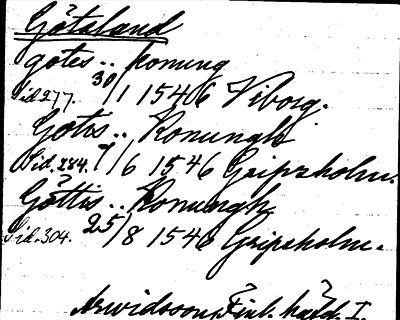 Götaland
götes .. konung
Sid 277. 30/1 1546 Viborg.
Gotis .. Konungh
Sid. 284. 7/6 1546 Gripzholm.
Göttis .. Konungh
Sid. 304. 25/8 1546 Gripsholm.
Arwidsson, Finl. handl. I.